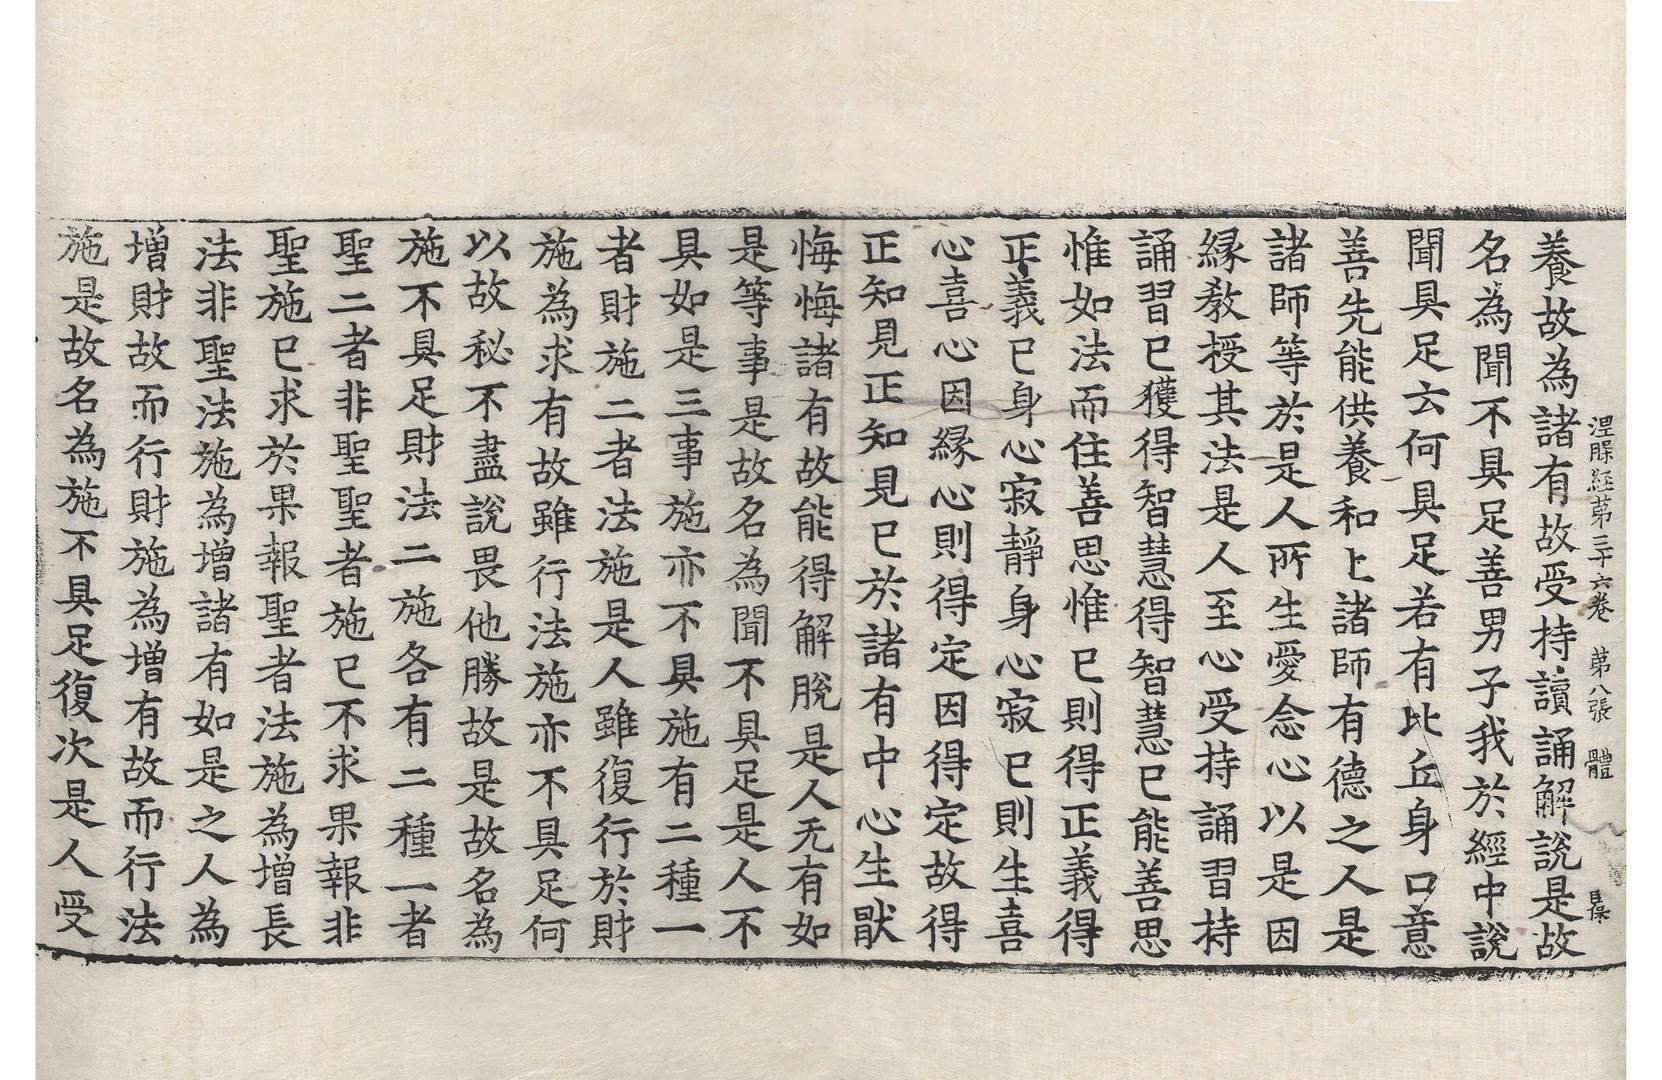 涅槃経苐三十六卷 苐八張 體
養故為諸有故受持讀誦解說是故
名為聞不具足善男子我於經中說
聞具足云何具足若有比丘身口意
善先能供養和上諸師有德之人是
諸師等於是人所生愛念心以是因
緣教授其法是人至心受持誦習持
誦習已獲得智慧得智慧已能善思
惟如法而住善思惟已則得正義得
正義已身心寂靜身心寂已則生喜
心喜心因緣心則得定因得定故得
正知見正知見已於諸有中心生猒
悔悔諸有故能得解脫是人无有如
是等事是故名為聞不具足是人不
具如是三事施亦不具施有二種一
者財施二者法施是人雖復行於財
施為求有故雖行法施亦不具足何
以故秘不盡說畏他勝故是故名為
施不具足財法二施各有二種一者
聖二者非聖聖者施已不求果報非
聖施已求於果報聖者法施為增長
法非聖法施為增諸有如是之人為
增財故而行財施為增有故而行法
施是故名為施不具足復次是人受